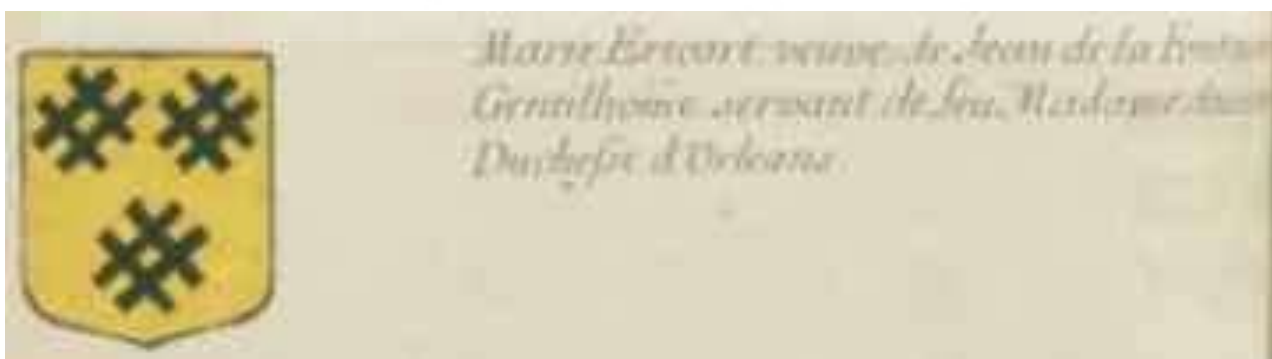 Marie Ericart veuve de Jean de la
Gentilhome servant de feu Madame
Duchesse d'Orleans